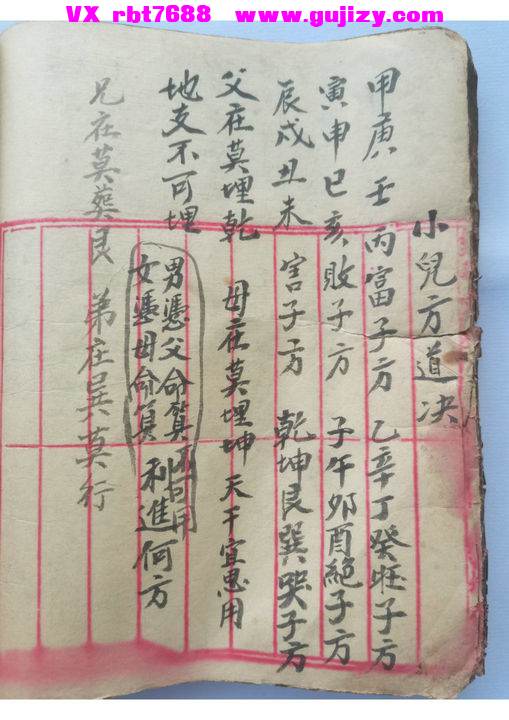 VX rbt7688 www.gujizy.com
小兒方道决
甲庚壬丙富子方 乙辛丁癸旺子方
寅申巳亥敗子方 子午卯酉絕子方
辰戌丑未害子方 乾坤艮巽哭子方
父在莫埋乾 母在莫埋坤 天干宜思用
地支不可埋
男憑父命算
女憑母命算 利進何方
兄在莫葬艮 弟在巽莫行